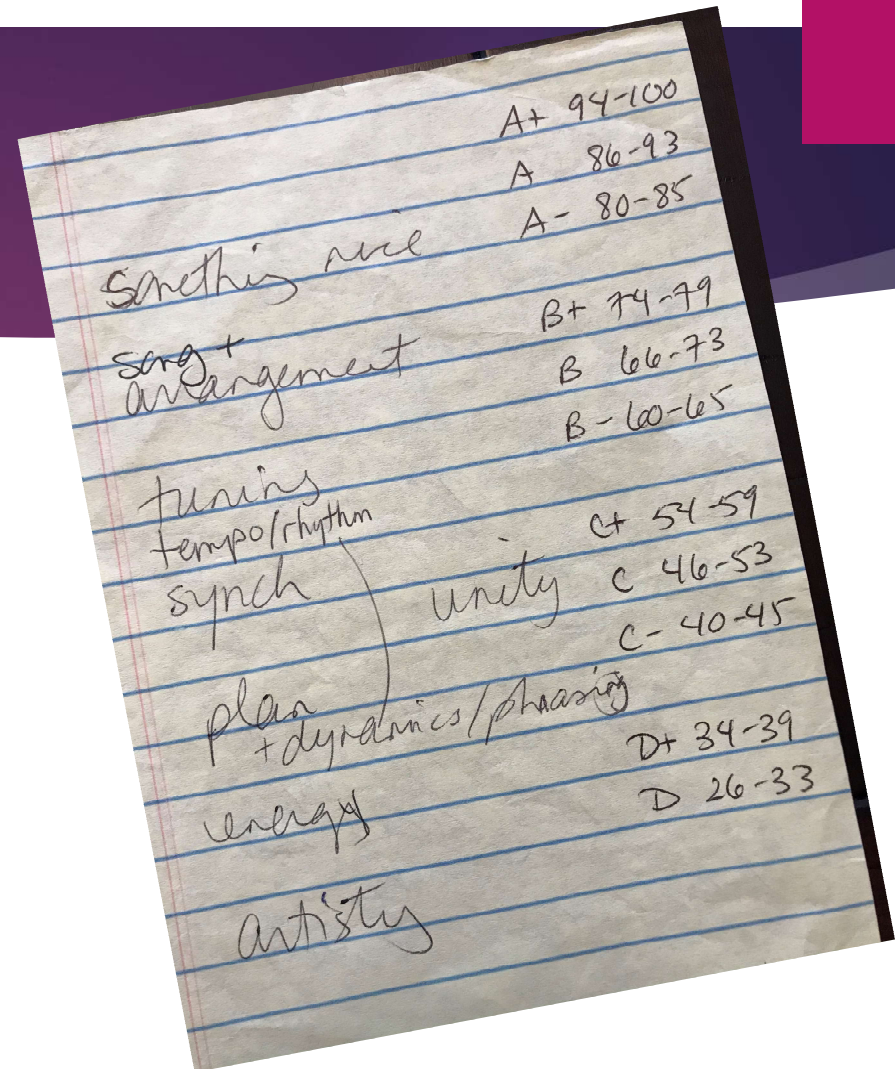 A+ 94-100
A 86-93
A- 80-85
somethin nice
B+ 74-79
song +
arrangement
B 66-73
B- 60-65
tuning
tempo/rhythm
synch
unity
C+ 54-59
C 46-53
C- 40-45
plan
+ dynamics/phrasing
D+ 34-39
D 26-33
energy
artisty